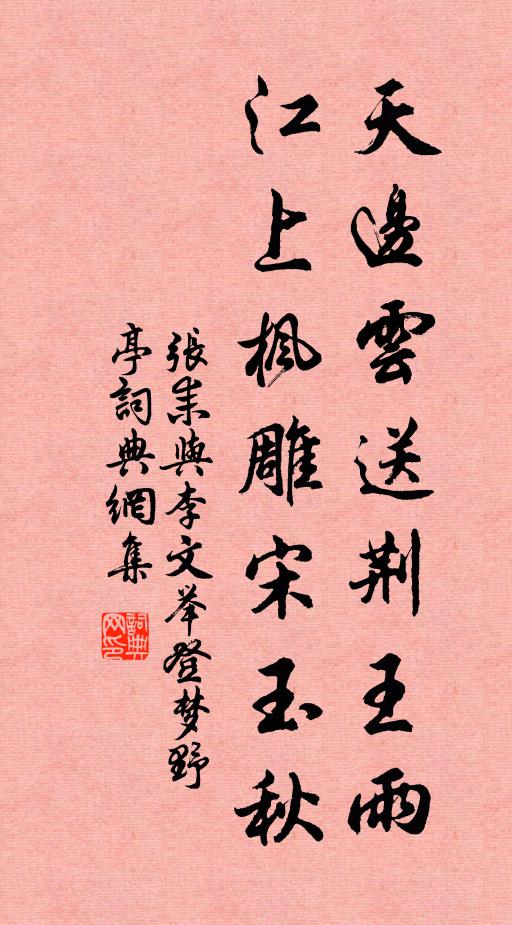 天邊雲送荆王雨
江上楓雕宋玉秋
張耒與李文举登梦野
亭詞典網集
詞典
网印